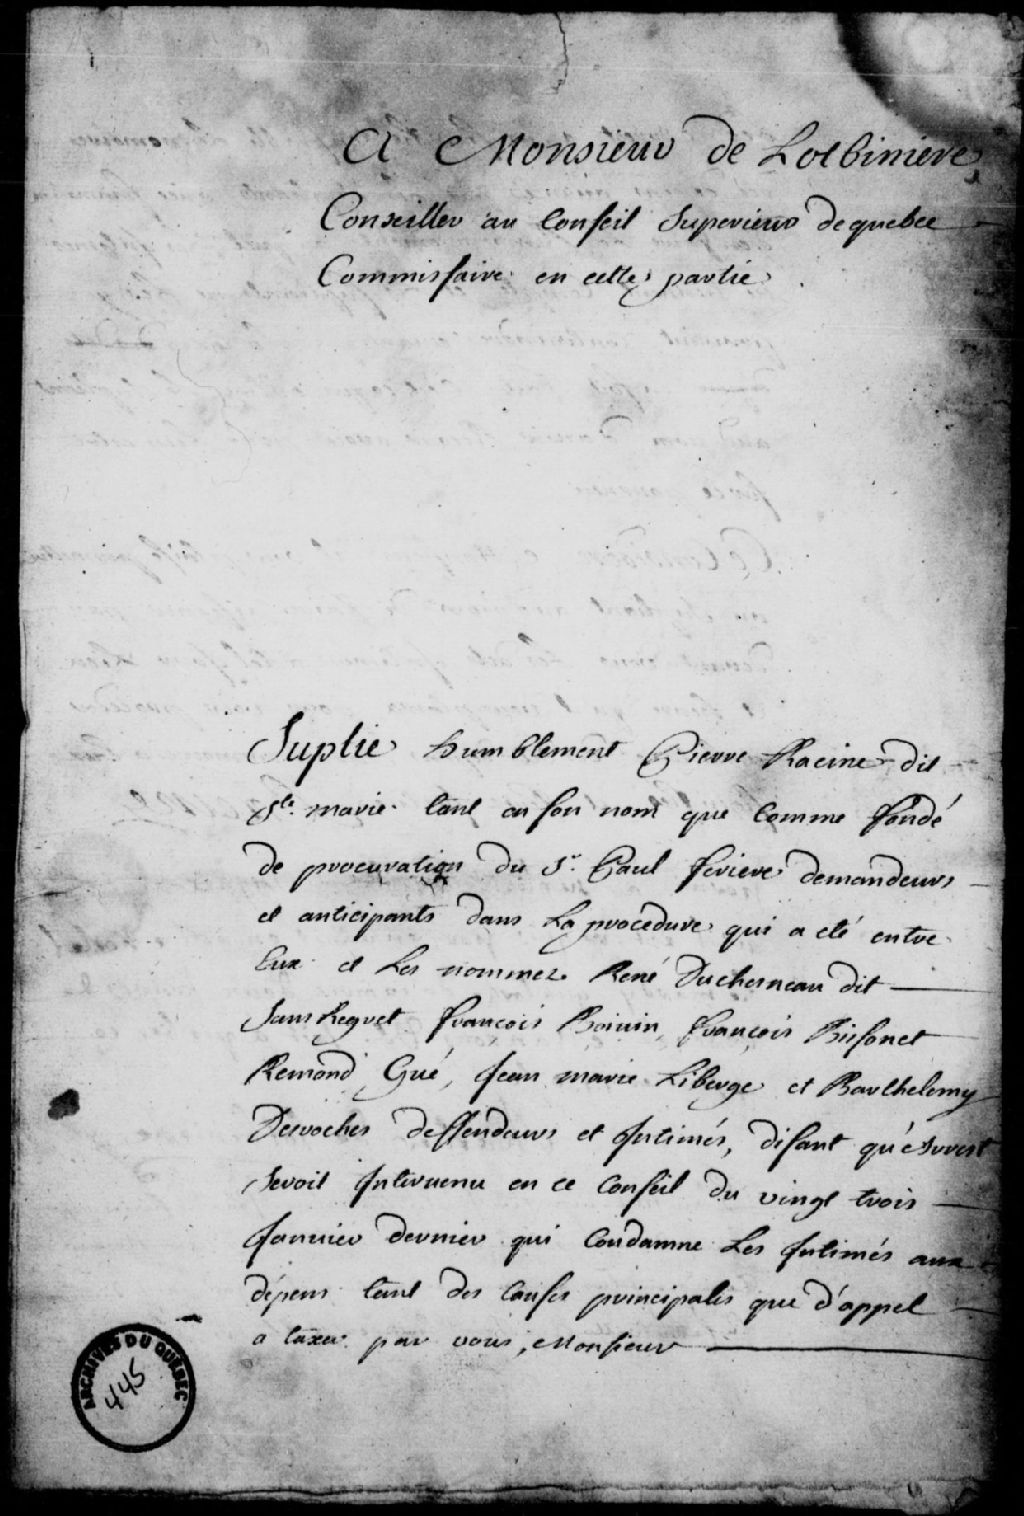 A Monsieur de Lotbiniere
Conseiller au Conseil Superieur de quebec
Commissaire en cette partie
Suplie humblement Pierre Racine dit
Ste. marie tant en son nom que comme fondé
de procuration du Sr. Paul feriere demandeurs
et anticipants dans La procedure qui a eté entre
Eux et Les nommez René Duchesneau dit
Sansregret françois Boivin, françois Bissonet
Remond Gué, Jean marie Liberge et Barthelemy
Desroches deffendeurs et Intimés, disant qu'
Seroit Intervenu en ce Conseil du vingt trois
Janvier dernier qui Condamne Les Intimés aux
dépens tant des Causes principales que d'appel
a taxer par vous, Monsieur
ARCHIVES DU QUÉBEC
445